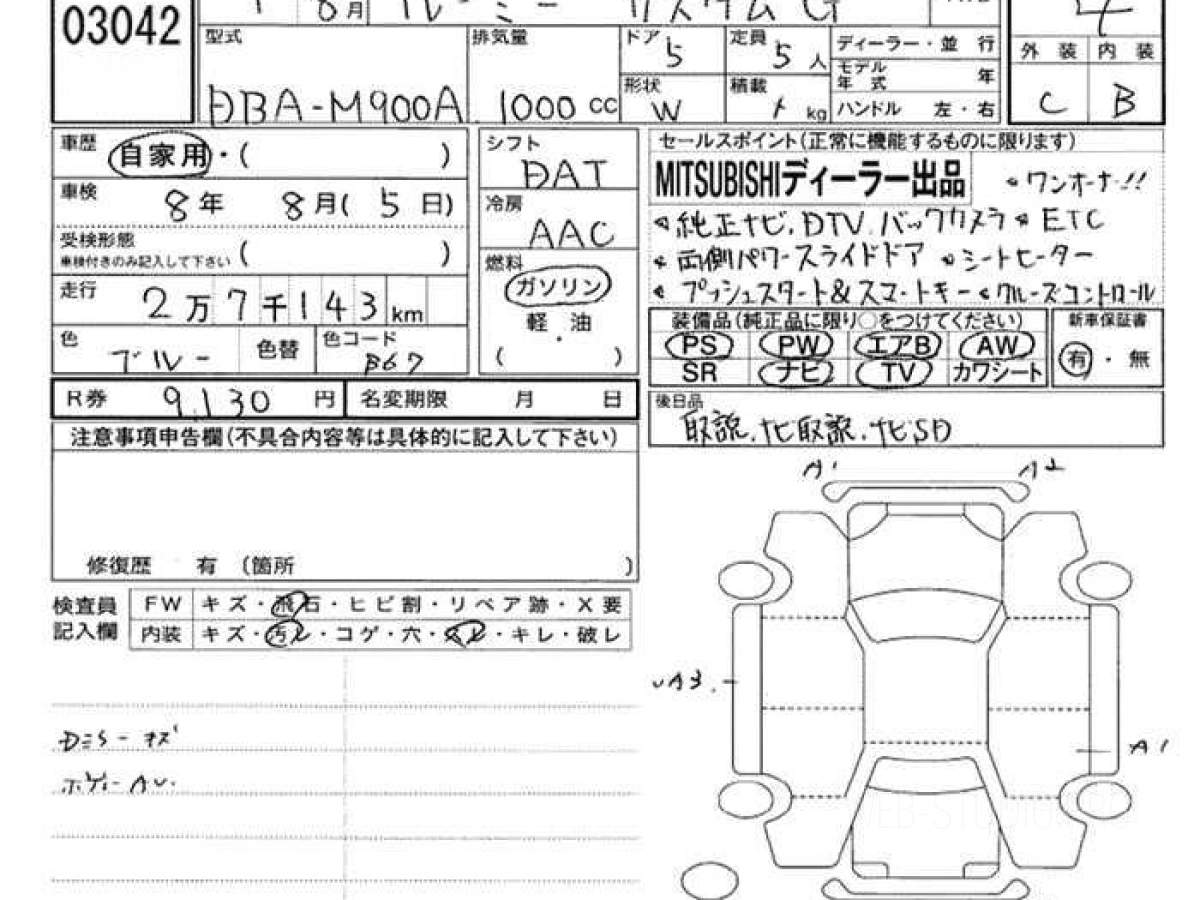 03042
8月 ルーミー カスタム G
4
型式 DBA-M900A
排気量 1000 CC
ドア 5
定員 5 人
形状 W
積載 kg
ディーラー・並 行
モデル年式 年
ハンドル 左・右
外 装 内 装
C B
車歴 自家用・( )
車検 8年 8月( 5日)
受検形態 ( )
車検付きのみ記入して下さい
走行 2万7千143km
色 ブルー 色替 色コード B67
シフト DAT
冷房 AAC
燃料 ガソリン
軽・油
( )
セールスポイント(正常に機能するものに限ります)
MITSUBISHIディーラー出品 ワンオーナー!!
純正ナビ、DTV、バックカメラ ETC
両側パワースライドドア シートヒーター
プッシュスタート&スマートキー クルーズコントロール
装備品(純正品に限り○をつけてください)
PS PW エアB AW
SR ナビ TV カワシート
新車保証書
有・無
R券 9,130 円 名変期限 月 日
後日品
取説、ナビ取説、ナビSD
注意事項申告欄(不具合内容等は具体的に記入して下さい)
修復歴 有 (箇所 )
検査員記入欄
FW キズ・飛石・ヒビ割・リペア跡・X要
内装 キズ・汚レ・コゲ・穴・スレ・キレ・破レ
A1 A2
A3
A1